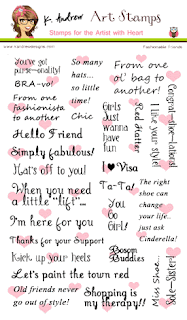 K. Andrew Art Stamps
Stamps for the Artist with Heart
Fashionable Friends
You've got
purse-onality!
BRA-vo!
From one
fashionista
to another
So many
hats...
so little
time!
Chic
From one
ol' bag to
another!
Congrat-shoe-lations!
I like your style!
Red Hatter
Girls
Just
Wanna
have
fun
Hello Friend
Simply fabulous!
Hat's off to you!
I ♥ Visa
When you need
a little "lift"...
Ta-Ta!
You
Go
Girl!
The right
shoe can
change
your life..
just ask
Cinderella!
I'm here for you
Thanks for your Support
Kick up your heels
Bosom
Buddies
Let's paint the town red
Old friends never
go out of style!
Shopping is
my therapy!!
Miss Shoe...
Sole-Sister!